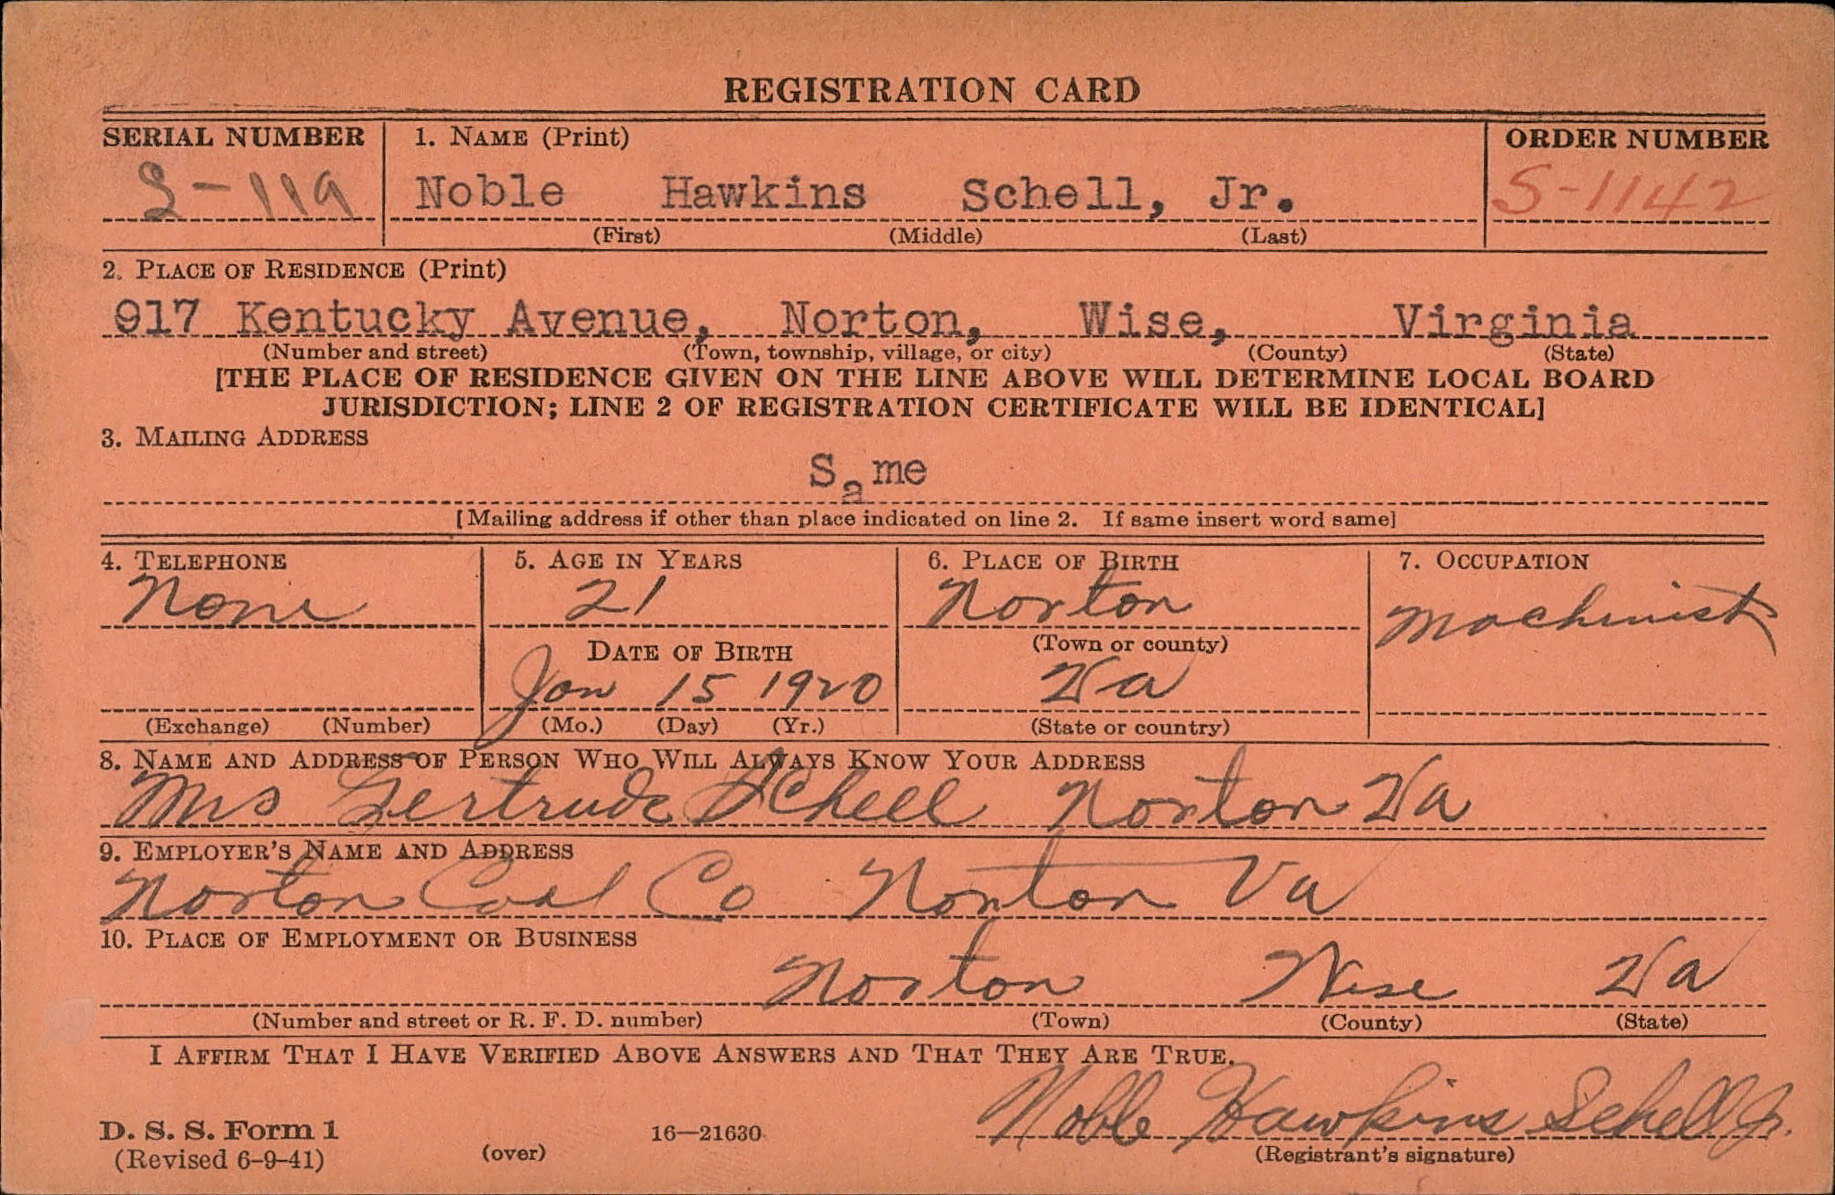 REGISTRATION CARD
SERIAL NUMBER 1. NAME (Print) ORDER NUMBER
S-119 Noble Hawkins Schell, Jr. S-1142
(First) (Middle) (Last)
2. PLACE OF RESIDENCE (Print)
917 Kentucky Avenue, Norton, Wise, Virginia
(Number and street) (Town, township, village, or city) (County) (State)
[THE PLACE OF RESIDENCE GIVEN ON THE LINE ABOVE WILL DETERMINE LOCAL BOARD
JURISDICTION; LINE 2 OF REGISTRATION CERTIFICATE WILL BE IDENTICAL]
3. MAILING ADDRESS
Same
[Mailing address if other than place indicated on line 2. If same insert word same]
4. TELEPHONE 5. AGE IN YEARS 6. PLACE OF BIRTH 7. OCCUPATION
None 21 Norton Machinist
DATE OF BIRTH (Town or county)
Jan 15 1920 Va
(Exchange) (Number) (Mo.) (Day) (Yr.) (State or country)
8. NAME AND ADDRESS OF PERSON WHO WILL ALWAYS KNOW YOUR ADDRESS
Mrs Gertrude Schell Norton Va
9. EMPLOYER'S NAME AND ADDRESS
Norton Coal Co Norton Va
10. PLACE OF EMPLOYMENT OR BUSINESS
Norton Wise Va
(Number and street or R. F. D. number) (Town) (County) (State)
I AFFIRM THAT I HAVE VERIFIED ABOVE ANSWERS AND THAT THEY ARE TRUE.
Noble Hawkins Schell Jr.
D. S. S. Form 1
(Revised 6-9-41) (over) 16—21630 (Registrant's signature)